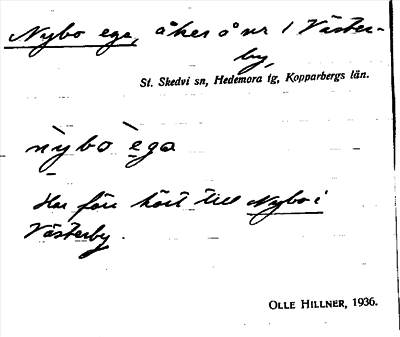 Nybo ega, åker å nr 1 Väster-
by,
St. Skedvi sn, Hedemora tg, Kopparbergs län.
ǹybo èga
Har förr hört till Nybo i
Västerby.
OLLE HILLNER, 1936.